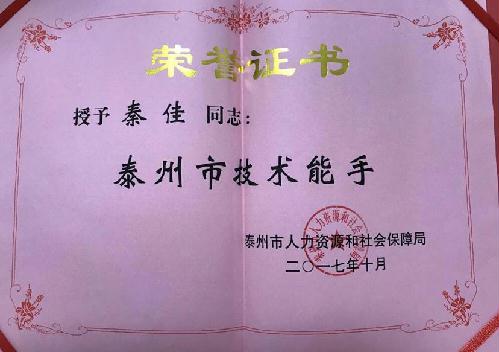 荣誉证书
授予 秦佳 同志：
泰州市技术能手
泰州市人力资源和社会保障局
二〇一七年十月